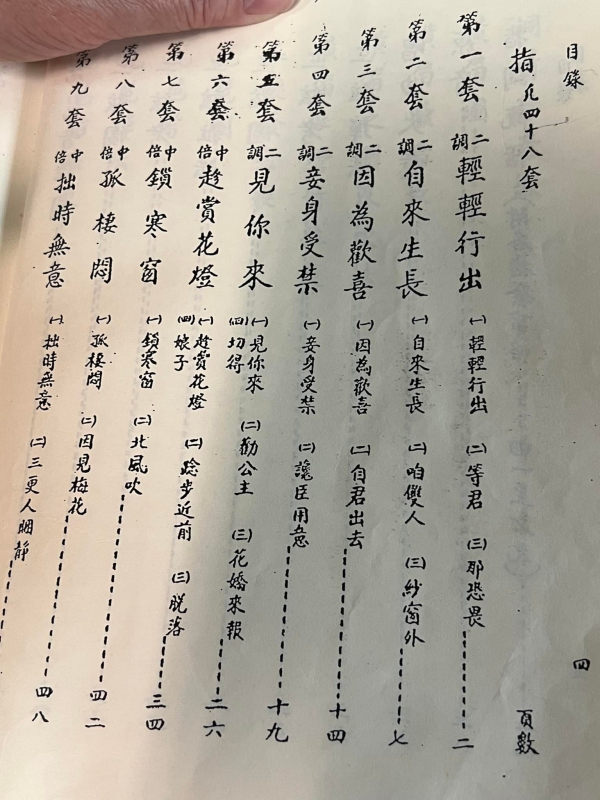 目錄
四
指 凡四十八套 頁數
第一套 二調 輕輕行出 ㈠輕輕行出 ㈡等君 ㈢那恐畏 二
第二套 二調 自來生長 ㈠自來生長 ㈡咱雙人 ㈢紗窗外 七
第三套 二調 因為歡喜 ㈠因為歡喜 ㈡自君出去 十四
第四套 二調 妾身受禁 ㈠妾身受禁 ㈡讒臣用意 十九
第五套 二調 見你來 ㈠見你來 ㈡勸公主 ㈢花嬌來報 ㈣切得 二六
第六套 中倍 趁賞花燈 ㈠趁賞花燈 ㈡踗步近前 ㈢脫落 ㈣娘子 三四
第七套 中倍 鎖寒窗 ㈠鎖寒窗 ㈡北風吹 四二
第八套 中倍 孤棲悶 ㈠孤棲悶 ㈡因見梅花 四八
第九套 中倍 拙時無意 ㈠拙時無意 ㈡三更人睏靜